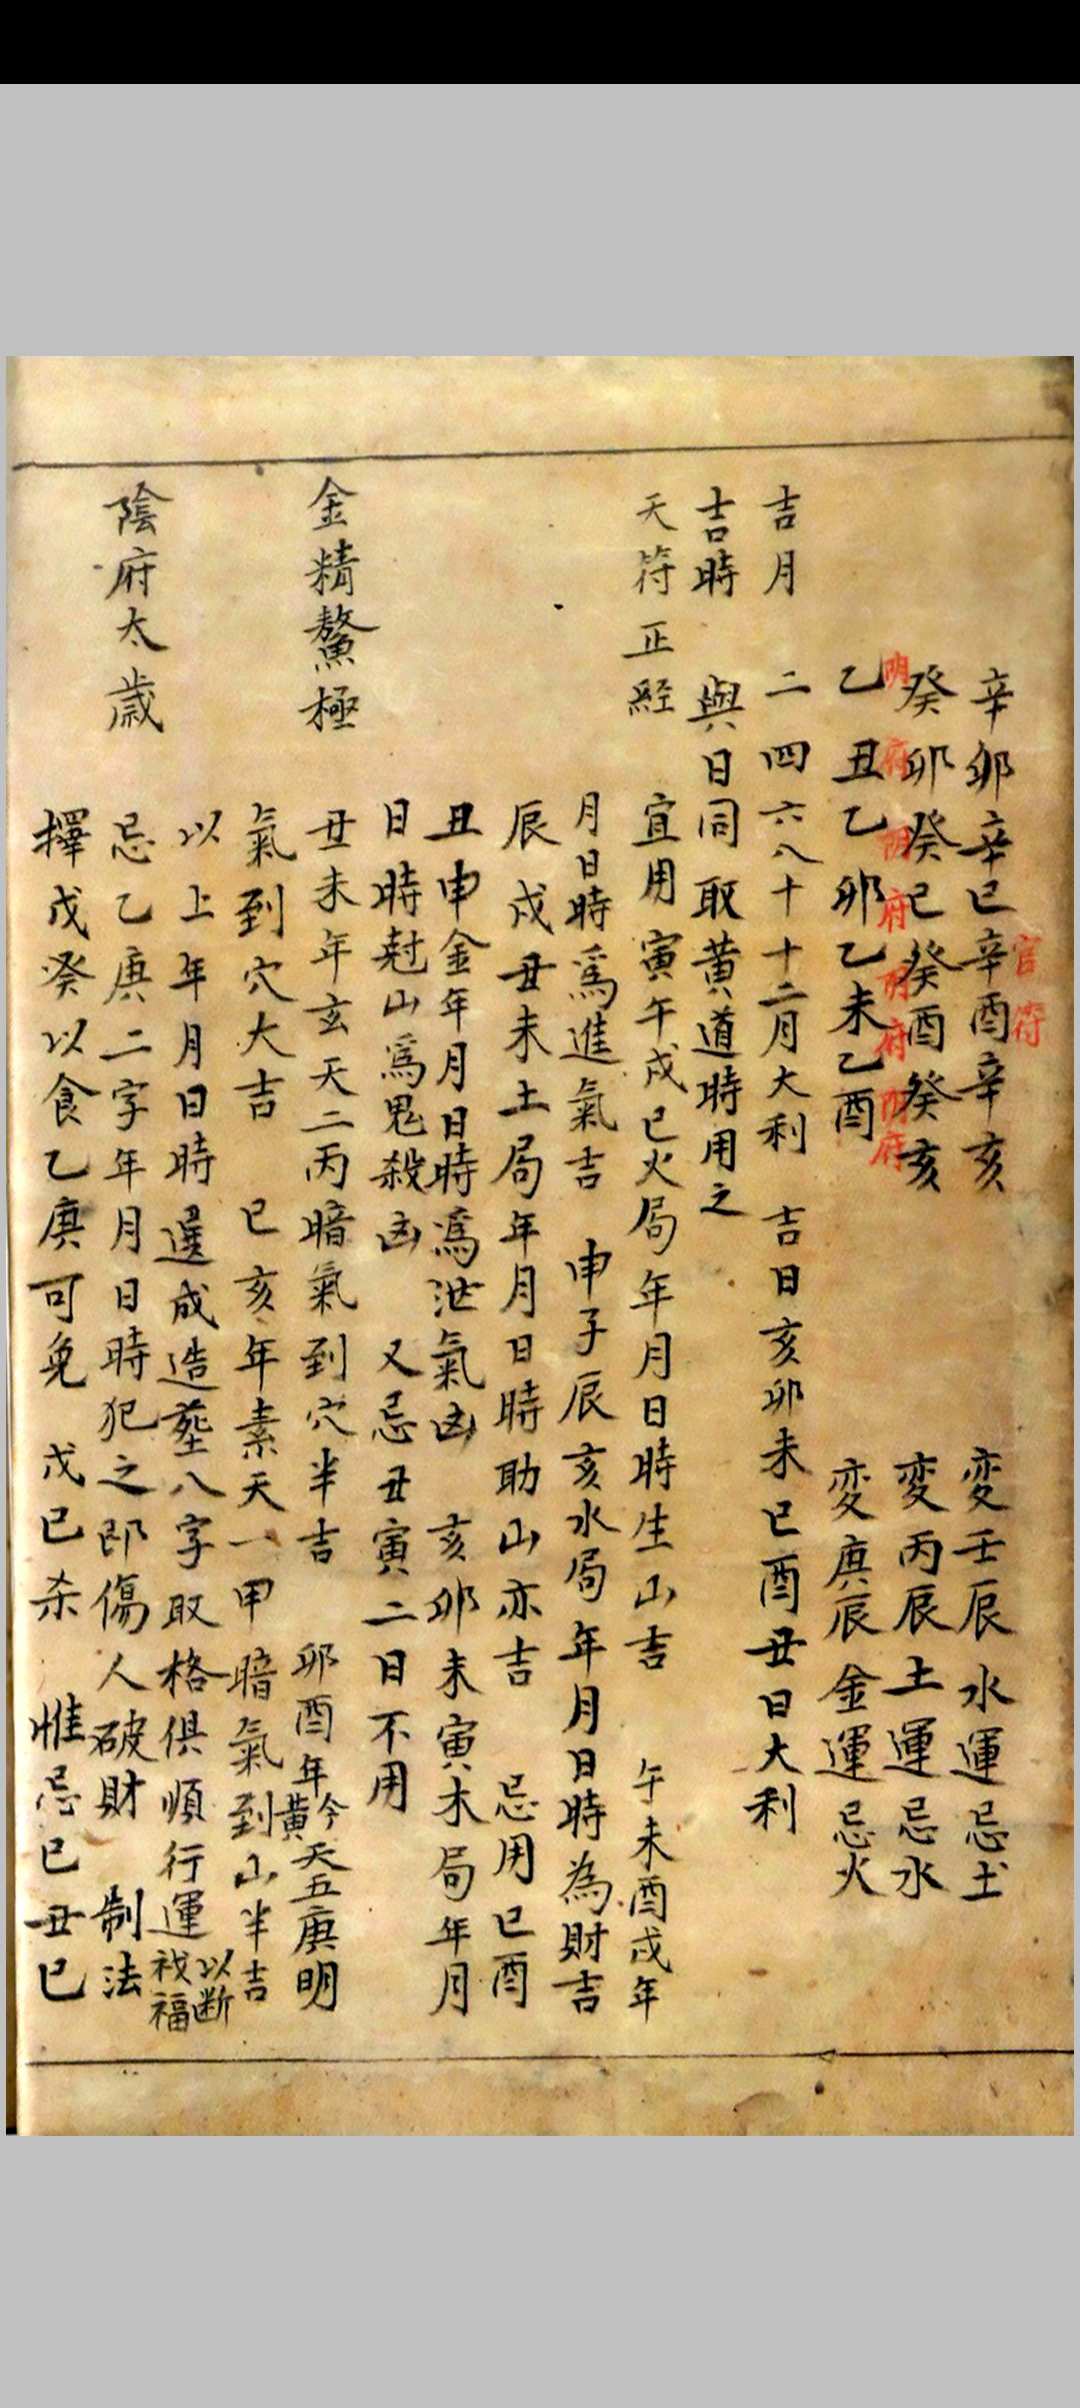 官符
辛卯辛巳辛酉辛亥 変壬辰水運忌土
癸卯癸巳癸酉癸亥 変丙辰土運忌水
明府 阴府 府 阴府
乙丑乙卯乙未乙酉 変庚辰金運忌火
吉月 二四六八十十二月大利 吉日亥卯未巳酉丑日大利
吉時 與日同取黄道時用之
天符正経 宜用寅午戌巳火局年月日時生山吉 午未酉戌年
月日時爲進氣吉 申子辰亥水局年月日時為財吉
辰戌丑未土局年月日時助山亦吉 忌用巳酉
丑申金年月日時爲泄氣凶 亥卯未寅木局年月
日時尅山爲鬼殺凶 又忌丑寅二日不用
金精鰲極 丑未年玄天二丙暗氣到穴半吉 卯酉年今黄天五庚明
氣到穴大吉 巳亥年素天一甲暗氣到山半吉
以上年月日時選成造塟八字取格俱順行運以断
福
陰府太歲 忌乙庚二字年月日時犯之即傷人破財 制法
擇戊癸以食乙庚可免 戊巳杀 惟忌巳丑巳